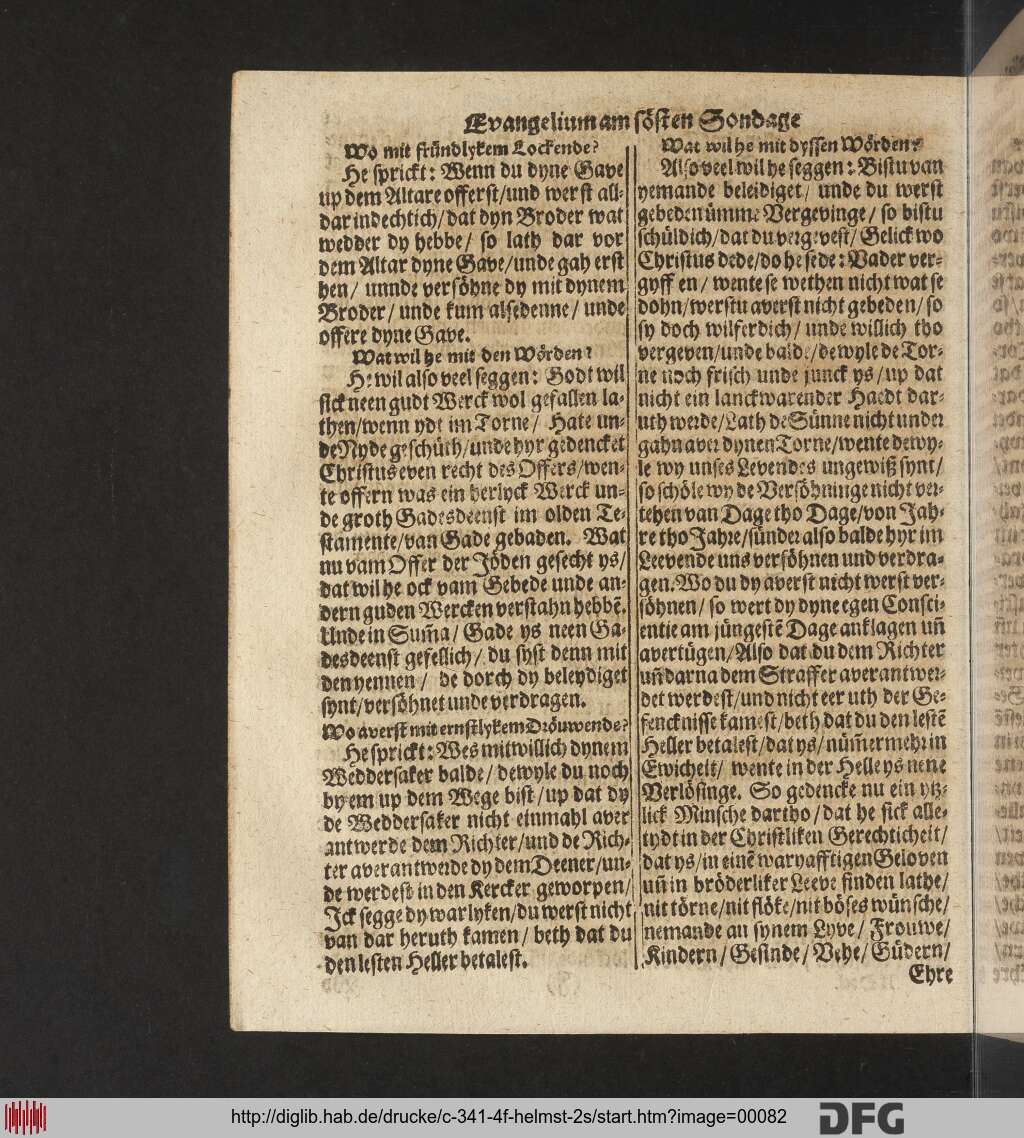 Evangelium am sösten Sondage
Wo mit fründlykem Lockende?
He sprickt: Wenn du dyne Gave
up dem Altare offerst/und werst all-
dar indechtich/dat dyn Broder wat
wedder dy hebbe/ so lath dar vor
dem Altar dyne Gave/unde gah erst
hen/ unnde versöhne dy mit dynem
Broder/ unde kum alsedenne/ unde
offere dyne Gave.
Wat wil he mit den Wörden?
He wil also veel seggen: Godt wil
sick neen gudt Werck wol gefallen la-
then/wenn ydt im Torne/ Hate un-
de Nyde geschüth/unde hyr gedencket
Christus even recht des Offers/wen-
te offern was ein herlyck Werck un-
de groth Gadesdeenst im olden Te-
stamente/van Gade gebaden. Wat
nu vam Offer der Jöden gesecht ys/
dat wil he ock vam Gebede unde an-
dern guden Wercken verstahn hebbē.
Unde in Sum̄a/ Gade ys neen Ga-
desdeenst gefellich/ du syst denn mit
den yennen/ de dorch dy beleydiget
synt/versöhnet unde verdragen.
Wo averst mit ernstlykem Dröuwende?
He sprickt: Wes mitwillich dynem
Weddersaker balde/ dewyle du noch
by em up dem Wege bist/up dat dy
de Weddersaker nicht einmahl aver
antwerde dem Richter/und de Rich-
ter averantwerde dy dem Deener/un-
de werdest in den Kercker geworpen/
Ick segge dy warlyken/du werst nicht
van dar heruth kamen/ beth dat du
den lesten Heller betalest.
Wat wil he mit dyssen Wörden?
Also veel wil he seggen: Bistu van
yemande beleidiget/ unde du werst
gebeden ümme Vergevinge/ so bistu
schüldich/dat du vergevest/Gelick wo
Christus dede/do he sede: Vader ver-
gyff en/ wente se wethen nicht wat se
dohn/werstu averst nicht gebeden/so
sy doch wilferdich/ unde willich tho
vergeven/unde balde/dewyle de Tor-
ne noch frisch unde junck ys/up dat
nicht ein lanckwarender Haedt dar-
uth werde/Lath de Sünne nicht under
gahn aver dynen Torne/wente dewy-
le wy unses Levendes ungewiß synt/
so schöle wy de Versöhninge nicht ver-
tehen van Dage tho Dage/von Jah-
re tho Jahre/sünder also balde hyr im
Leevende uns versöhnen und verdra-
gen. Wo du dy averst nicht werst ver-
söhnen/ so wert dy dyne egen Consci-
entie am jüngestē Dage anklagen uñ
avertügen/Also dat du dem Richter
uñ darna dem Straffer averantwer-
det werdest/und nicht eer uth der Ge-
fencknisse kamest/beth dat du den lestē
Heller betalest/dat ys/nüm̄ermehr in
Ewicheit/ wente in der Helle ys nene
Verlösinge. So gedencke nu ein ytz-
lick Minsche dartho/dat he sick alle-
tydt in der Christliken Gerechticheit/
dat ys/in einē waryafftigen Geloven
uñ in bröderliker Leeve finden lathe/
nit törne/nit flöke/nit böses wünsche/
nemande an synem Lyve/ Frouwe/
Kindern/Gesinde/Vehe/Güdern/
Ehre
http://diglib.hab.de/drucke/c-341-4f-helmst-2s/start.htm?image=00082
DFG